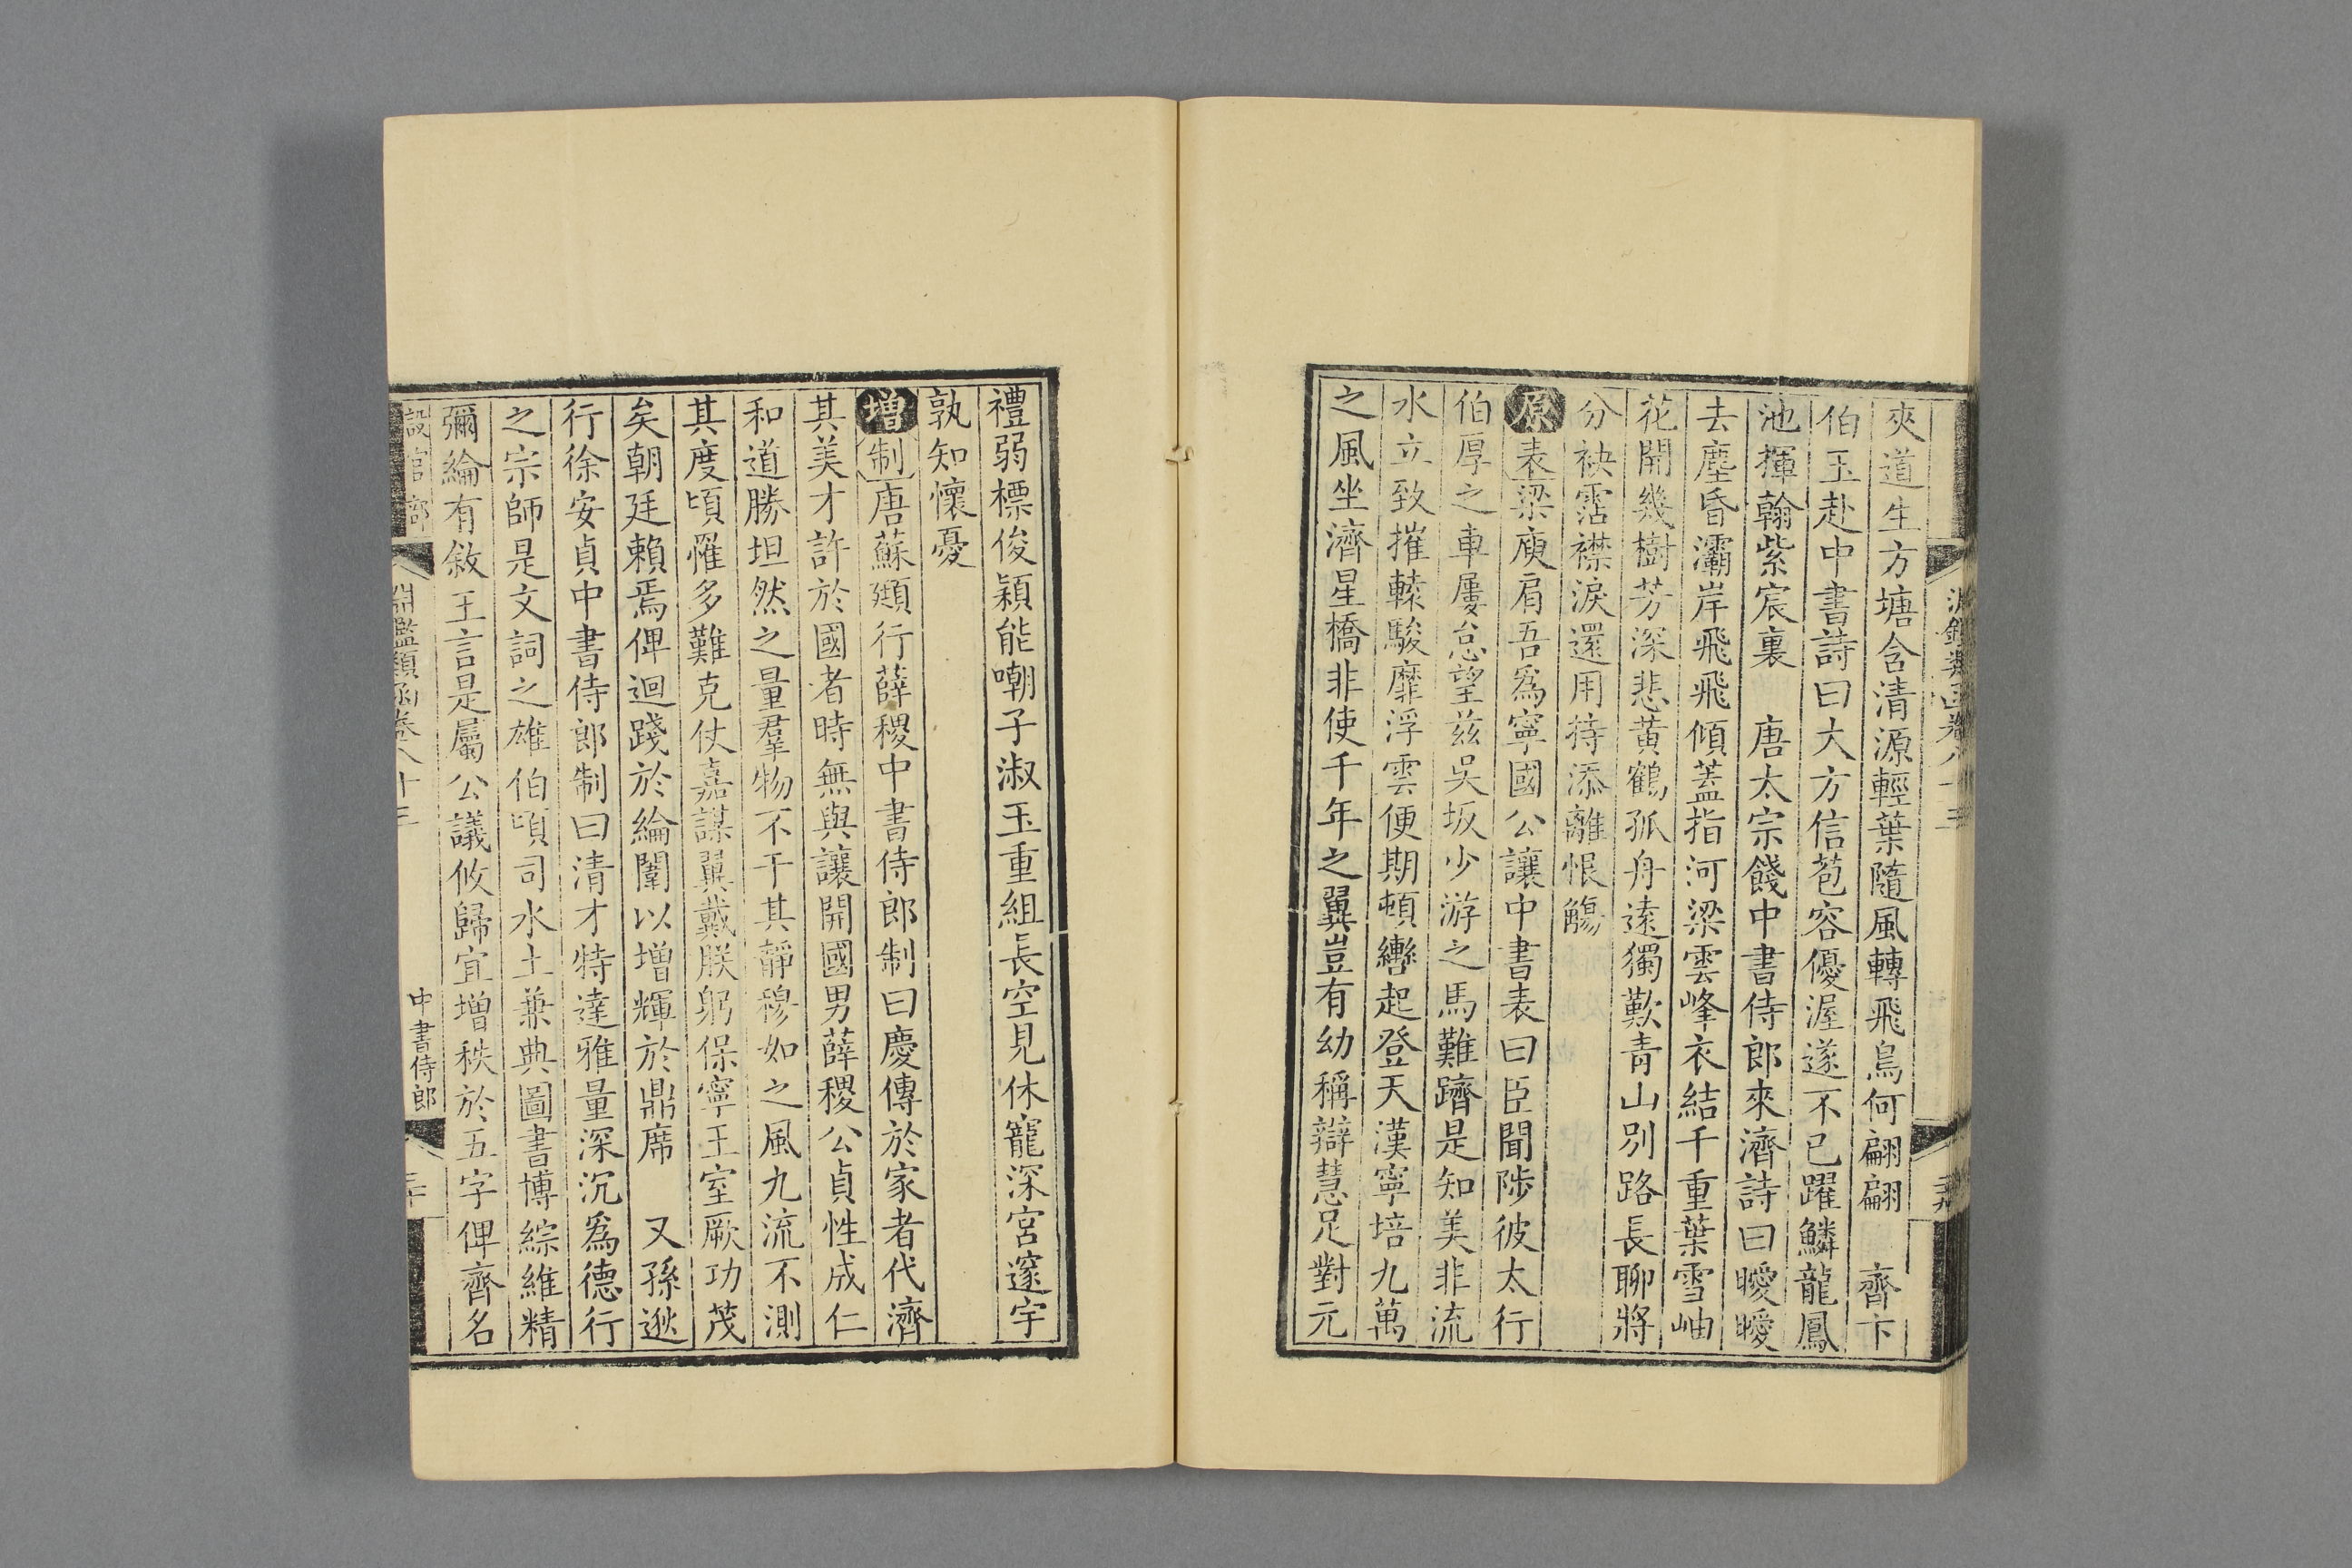 夾道生方塘含清源輕葉隨風轉飛鳥何翩翩　齊卞
伯玉赴中書詩曰大方信苞容優渥遂不已躍鱗龍鳳
池揮翰紫宸裏　唐太宗餞中書侍郎來濟詩曰曖曖
去塵昏灞岸飛飛傾蓋指河梁雲峰衣結千重葉雪岫
花開幾樹芳深悲黃鶴孤舟遠獨歎青山別路長聊將
分袂霑襟淚還用持添離恨觴
原表梁庾肩吾爲寧國公讓中書表曰臣聞陟彼太行
伯厚之車屢怠望兹吳坂少游之馬難躋是知美非流
水立致摧轅駿靡浮雲便期頓轡起登天漢寧培九萬
之風坐濟星橋非使千年之翼豈有幼稱辯慧足對元
禮弱標俊穎能嘲子淑玉重組長空見休寵深宮邃宇
孰知懷憂
增制唐蘇頲行薛稷中書侍郎制曰慶傳於家者代濟
其美才許於國者時無與讓開國男薛稷公貞性成仁
和道勝坦然之量羣物不干其靜穆如之風九流不測
其度頃罹多難克仗嘉謀翼戴朕躬保寧王室厥功茂
矣朝廷賴焉俾迴踐於綸闈以增輝於鼎席　又孫逖
行徐安貞中書侍郎制曰清才特達雅量深沉爲德行
之宗師是文詞之雄伯頃司水土兼典圖書博綜維精
彌綸有敘王言是屬公議攸歸宜增秩於五字俾齊名
設官部
淵鑑類函卷八十三
中書侍郎
三十